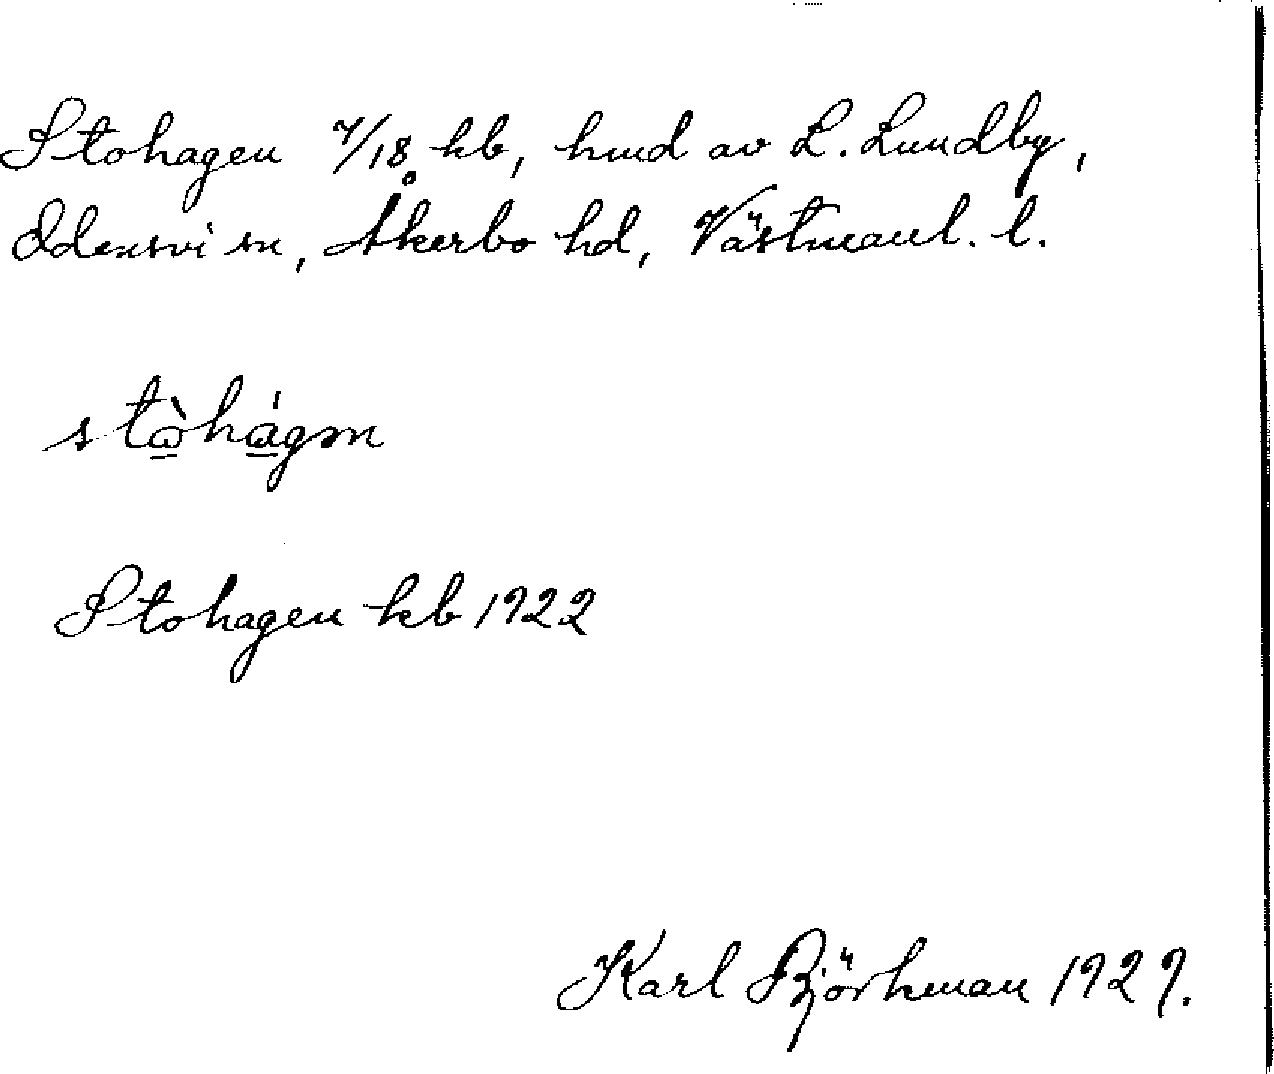 Stohagen 7/18 kb, hmd av L. Lundby,
Odensvi sn, Åkerbo hd, Västmanl. l.
Stohagen kb 1922
Karl Björkman 1929.